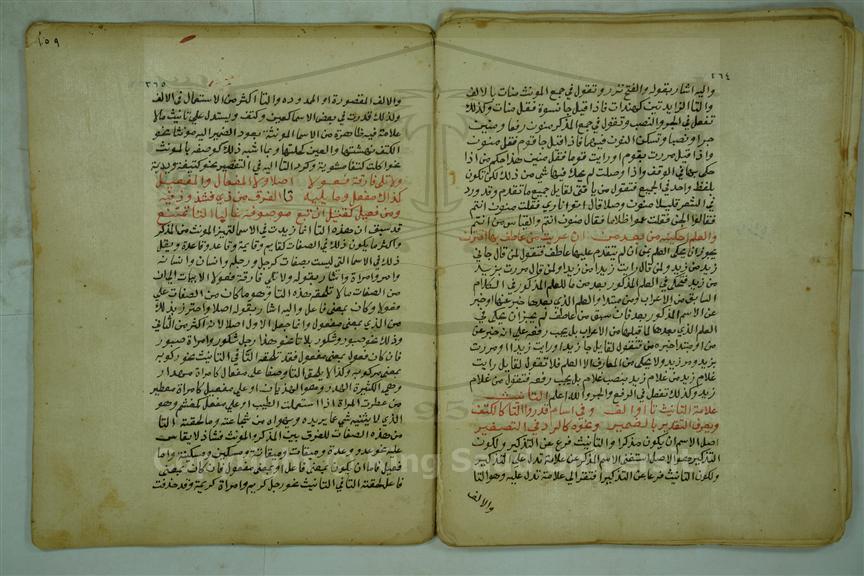 ٢٦٤
واليه اشار بقوله والفتح نزر وتقول في جمع المونث منات بالالف
والتا الزايدتين كهندات فاذا قيل جا نسوة فقل منات وكذلك
تفعل في الجر والنصب وتقول في جمع المذكر منون رفعا ومنين
جرا ونصبا وتسكن النون فيهما فاذا قيل جا قوم فقل منون
واذا قيل مررت بقوم او رايت قوما فقل منين هذا حكم من اذا
حكى بها في الوقف واذا وصلت لم يحك فيها شي من ذلك لكن تكون
بلفظ واحد في الجميع فتقول من يا فتى لقايل جميع ما تقدم وقد ورد
في الشعر قليلا منون وصلا قال اتوا ناري فقلت منون انتم
فقالوا الجن قلت عموا ظلاما فقال منون انتم والقياس من انتم
والعلم احكينه من بعد من ان عريت من عاطف بها اقترن
يجوز ان يحكى العلم بمن ان لم يتقدم عليها عاطف فتقول لمن قال جاني
زيد من زيد ولمن قال رايت زيدا من زيدا ولمن قال مررت بزيد
من زيد فتحكي في العلم المذكور بعد من ما للعلم المذكور في الكلام
السابق من الاعراب ومن مبتدا والعلم الذي بعدها خبر عنها او خبر
عن الاسم المذكور بعد فان سبق من عاطف لم يجز ان يحكى في
العلم الذي بعدها ما قبلها من الاعراب بل يجب رفعه على انه خبر عن
من او مبتدا خبره من فتقول لقايل جا زيد او رايت زيدا او مررت
بزيد ومن زيد ولا يحكى من المعارف الا العلم فلا تقول لقايل رايت
غلام زيد من غلام زيد بنصب غلام بل يجب رفعه فتقول من غلام
زيد وكذلك تفعل في الرفع والجر والله اعلم التانيث
علامة التانيث تا او الف وفي اسام قدروا التا كالكتف
ويعرف التقدير بالضمير ونحوه كالرد في التصغير
اصل الاسم ان يكون مذكرا والتانيث فرع عن التذكير ولكون
التذكير هو الاصل استغنى الاسم المذكر عن علامة تدل على التذكير
ولكون التانيث فرعا عن التذكير افتقر الى علامة تدل عليه وهو التا
والالف
١٥٩
٢٦٥
والالف المقصورة او الممدوده والتا اكثر من الاستعمال في الالف
ولذلك قدرت في بعض الاسما كعين وكتف ويستدل على تانيث ما لا
علامة فيه ظاهرة من الاسما المونثة بعود الضمير اليه مونثا نحو
الكتف نهشتها والعين كحلتها وبما اشبه ذلك كوصفه بالمونث
نحو اكلت كتفا مشوية وكرد التا اليه في التصغير نحو كتيفة ويدية
ولا تلي فارقة فعولا اصلا ولا المفعال والمفعيلا
كذاك مفعل وما يليه تا الفرق من ذي فشذوذ فيه
ومن فعيل كقتيل ان تبع موصوفه غالبا التا تمتنع
قد سبق ان هذه التا انما زيدت في الاسما لتميز المونث من المذكر
واكثر ما يكون ذلك في الصفات كقايم وقايمة وقاعد وقاعدة ويقل
ذلك في الاسما التي ليست بصفات كرجل ورجلة وانسان وانسانه
وامرؤ وامراة واشار بقوله ولا تلي فارقة فعولا الابيات الى ان
من الصفات ما لا تلحقه هذه التا وهو ما كان من الصفات على
فعول وكان بمعنى فاعل واليه اشار بقوله اصلا واحترز بذلك
من الذي بمعنى مفعول وانما جعل الاول اصلا لانه اكثر من الثاني
وذلك نحو صبور وشكور بلا تا نحو هذا رجل شكور وامراة صبور
فان كان فعول بمعنى مفعول فقد تلحقه التا في التانيث نحو ركوبه
بمعنى مركوبه وكذا لا تلحق التا وصفا على مفعال كامراة مهذار
وهي الكثيرة الهذر وهو الهذيان او على مفعيل كامراة معطير
من عطرت المراة اذا استعملت الطيب او على مفعل كمغشم وهو
الذي لا يثنيه شي عما يريده ويهواه من شجاعته وما لحقته التا
من هذه الصفات للفرق بين المذكر والمونث فشاذ لا يقاس
عليه نحو عدو وعدوة وميقان وميقانة ومسكين ومسكينة واما
فعيل فاما ان يكون بمعنى فاعل او بمعنى مفعول فان كان بمعنى
فاعل لحقته التا في التانيث نحو رجل كريم وامراة كريمة وقد حذفت